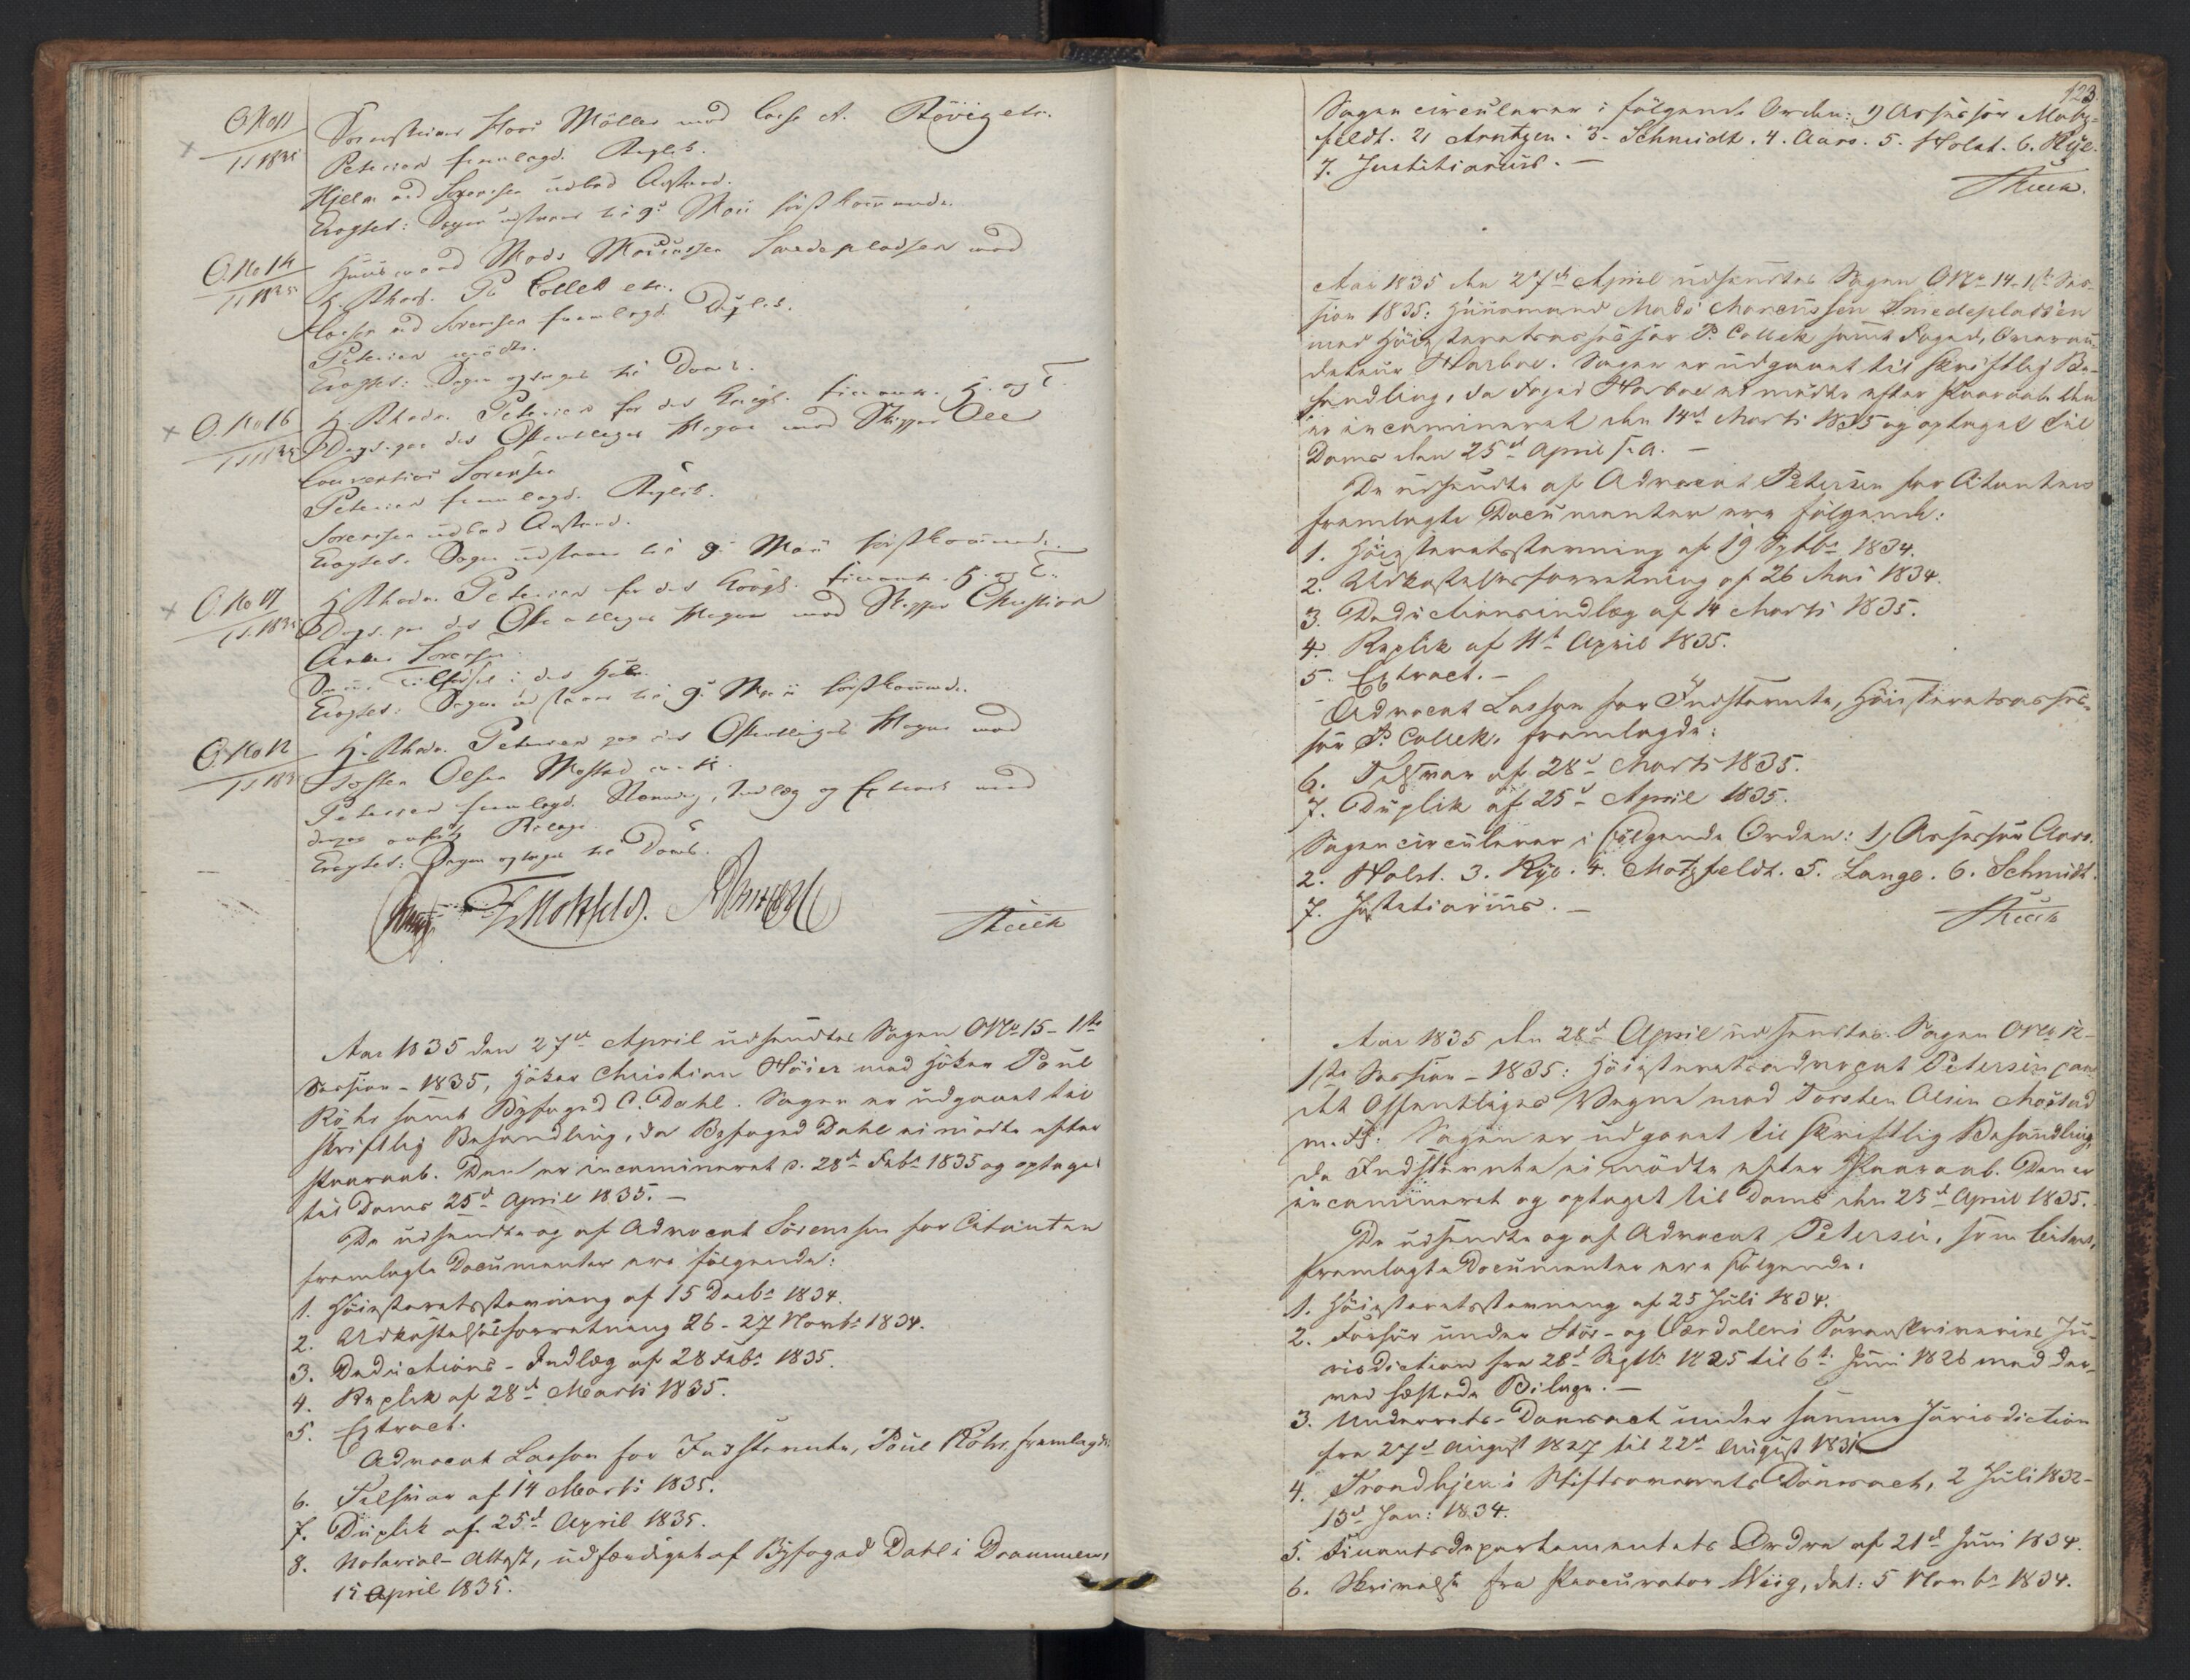 O.No 11
1 S 1835
Hans Möller mod Lars A. Rövig etc.
Petersen fremlagde Replik.
Hjelm ved Sörensen udbad Anstand.
Eragtet: Sagen udstaaer til 9de Mai förstkommende.
O. No 14
1 S 1835
Huusmand Mads Marcussen Smedepladsen mod
H. Rhads. P. Collett etc.
Lasson ved Sörensen fremlagde Duplik.
Petersen mödte.
Eragtet: Sagen optages til Doms.
O. No 16
1 S 1835
H. Rhadv. Petersen for det Kongl. Finants. H. og T.
Dep. paa det Offentliges Vegne mod Skipper Ole
Sörensen
Petersen fremlagde Replik.
Sörensen udbad Anstand.
Eragtet: Sagen udstaaer til 9de Mai förstkommende.
O. No 17
1 S. 1835
H. Rhadv. Petersen for det Kongl. Finants. H. og T.
Dep. paa det Offentliges Vegne mod Skipper Christian
Sörensen
Samme Tilförsel i det Hele.
Eragtet: Sagen udstaaer til 9de Mai förstkommende.
O. No 12
1 S 183
H. Rhadv. Petersen paa det Offentliges Vegne mod
Torsten Olsen Mostad m. fl.
Petersen fremlagde Stævning, Indlæg og Extract med
Bilage.
Eragtet: Sagen optages til Doms.
F Motzfeldt.
Aar 1835 den 27de April udsendtes Sagen O No 15 - 1ste
Session - 1835, Höker Christian Höier mod Höker Poul
Röhr samt Byfoged C. Dahl. Sagen er udgaaet til
skriftlig Behandling, da Byfoged Dahl ei mödte efter
Paaraab. Den er incamineret d. 28de Febr 1835 og optaget
til Doms 25de April 1835. -
De udsendte og af Advocat Sörenssen for Citanten
fremlagte Documenter ere fölgende:
1. Höiesteretsstævning af 15 Decbr 1834.
2. Udkastelsesforretning 26 - 27 Novbr 1834.
3. Deductions - Indlæg af 28 Febr 1835.
4. Replik af 28de Marti 1835.
5. Extract.
Advocat Lasson for Indstevnte, Poul Röhr, fremlagde
6. Tilsvar af 14 Marti 1835.
7. Duplik af 25de April 1835.
8. Notarial-Attest, udfærdiget af Byfoged Dahl i Drammen,
15 April 1835.
123.
Sagen circulerer i fölgende Orden: 1) Assessor Motz-
feldt. 2) Arntzen. 3. Schmidt. 4. Aars. 5. Holst. 6. Rye.
7. Justitiarius. -
Aar 1835 den 27de April udsendtes Sagen O No 14 - 1ste Ses-
sion 1835: Huusmand Mads Marcussen Smedepladsen
mod Höiesteretsassessor P. Collett samt Foged, Overau-
diteur Harboe. Sagen er udgaaet til skriftlig Be-
handling, da Foged Harboe ei mödte efter Paaraab. Den
er incamineret den 14de Marti 1835 og optaget til
Doms den 25de April s. a. -
De udsendte af Advocat Petersen for Citanten
fremlagte Documenter ere fölgende:
1. Höiesteretsstævning af 19 Septbr 1834.
2. Udkastelsesforretning af 26 Mai 1834.
3. Deductionsindlæg af 14 Marti 1835.
4. Replik af 11te April 1835.
5. Extract. -
Advocat Lasson for Indstevnte, Höiesteretsasses-
sor P. Collett, fremlagde:
6. Tilsvar af 28de Marti 1835.
7. Duplik af 25de April 1835.
Sagen circulerer i fölgende Orden: 1) Assessor Aars.
2. Holst. 3. Rye. 4. Motzfeldt. 5. Lange. 6. Schmidt.
7. Justitiarius. -
Aar 1835 den 28de April udsendtes Sagen O No 12 -
1ste Session - 1835: Höiesteretsadvocat Petersen paa
det Offentliges Vegne mod Torsten Olsen Mostad
m. fl. Sagen er udgaaet til skriftlig Behandling,
da Indstevnte ei mödte efter Paaraab. Den er
incamineret og optaget til Doms den 25de April 1835.
De udsendte og af Advocat Petersen, som Citant,
fremlagte Documenter ere fölgende:
1. Höiesteretsstævning af 25 Juli 1834.
2. Forhör under Stör- og Værdalens Sorenskriveries Ju-
risdiction fra 28de Septbr 1825 til 6te Juni 1826 med der-
ved hæftede Bilage. -
3. Underrets-Domsact under samme Jurisdiction
fra 27de August 1827 til 22de August 1831
4. Trondhjems Stiftsoverrets Domsact, 2 Juli 1832 -
13de Jan: 1834.
5. Finantsdepartementets Ordre af 21de Juni 1834.
6. Skrivelse fra Procurator Wiig, dat: 5 Novbr 1834.